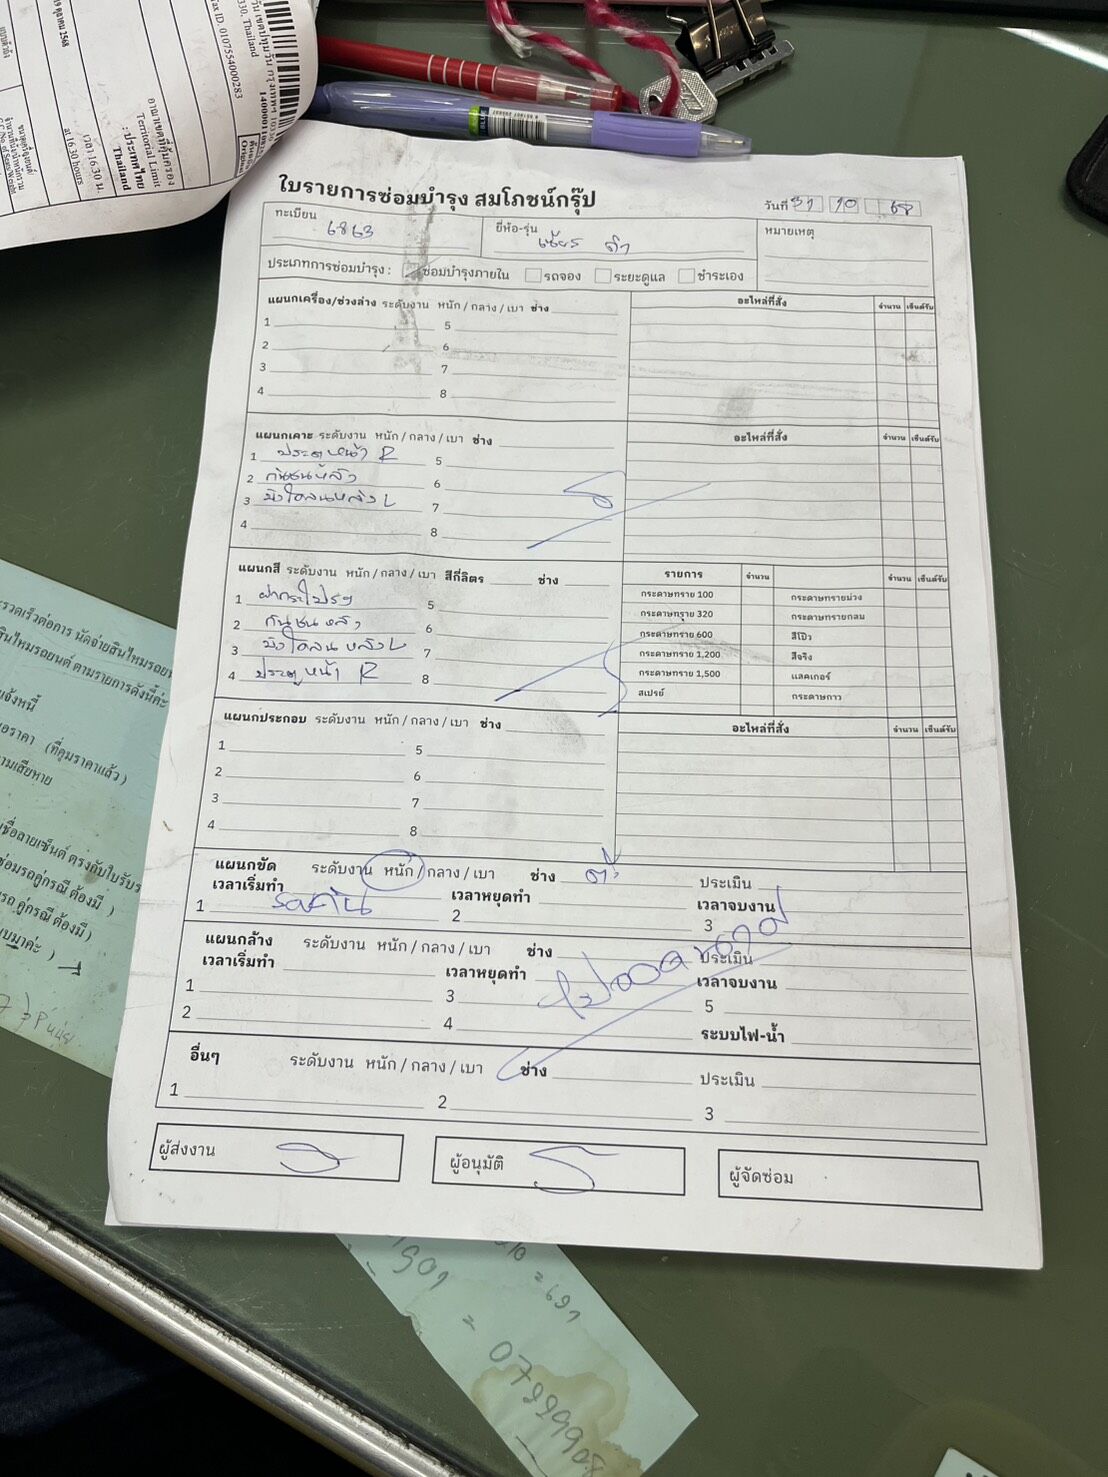 9 ตุลาคม 2568
330, Thailand
Tax ID. 0107554000283
อาณาเขตที่คุ้มครอง
Territorial Limit
: ประเทศไทย
Thailand
เวลา 16.30 น.
at 16.30 hours
ใบรายการซ่อมบำรุง สมโภชน์กรุ๊ป
วันที่ 31 10 68
ทะเบียน 6863
ยี่ห้อ-รุ่น
หมายเหตุ
ประเภทการซ่อมบำรุง : ซ่อมบำรุงภายใน รถจอง ระยะดูแล ชำระเอง
แผนกเครื่อง/ช่วงล่าง ระดับงาน หนัก / กลาง / เบา ช่าง
อะไหล่ที่สั่ง จำนวน เซ็นต์รับ
1 5
2 6
3 7
4 8
แผนกเคาะ ระดับงาน หนัก / กลาง / เบา ช่าง
อะไหล่ที่สั่ง จำนวน เซ็นต์รับ
1 ประตูหน้า R 5
2 กันชนหลัง 6
3 บังโคลนหลัง L 7
4 8
แผนกสี ระดับงาน หนัก / กลาง / เบา สีกี่ลิตร ช่าง
รายการ จำนวน จำนวน เซ็นต์รับ
1 ฝากระโปรง 5
2 กันชนหลัง 6
3 บังโคลนหลัง L 7
4 ประตูหน้า R 8
กระดาษทราย 100 กระดาษทรายม่วง
กระดาษทราย 320 กระดาษทรายกลม
กระดาษทราย 600 สีโป๊ว
กระดาษทราย 1,200 สีจริง
กระดาษทราย 1,500 แลคเกอร์
สเปรย์ กระดาษกาว
แผนกประกอบ ระดับงาน หนัก / กลาง / เบา ช่าง
อะไหล่ที่สั่ง จำนวน เซ็นต์รับ
1 5
2 6
3 7
4 8
แผนกขัด ระดับงาน หนัก / กลาง / เบา ช่าง ประเมิน
เวลาเริ่มทำ เวลาหยุดทำ เวลาจบงาน
1 2 3
แผนกล้าง ระดับงาน หนัก / กลาง / เบา ช่าง ประเมิน
เวลาเริ่มทำ เวลาหยุดทำ เวลาจบงาน
1 3 5
2 4 ระบบไฟ-น้ำ
อื่นๆ ระดับงาน หนัก / กลาง / เบา ช่าง ประเมิน
1 2 3
ผู้ส่งงาน
ผู้อนุมัติ
ผู้จัดซ่อม
(ที่คุมราคาแล้ว)